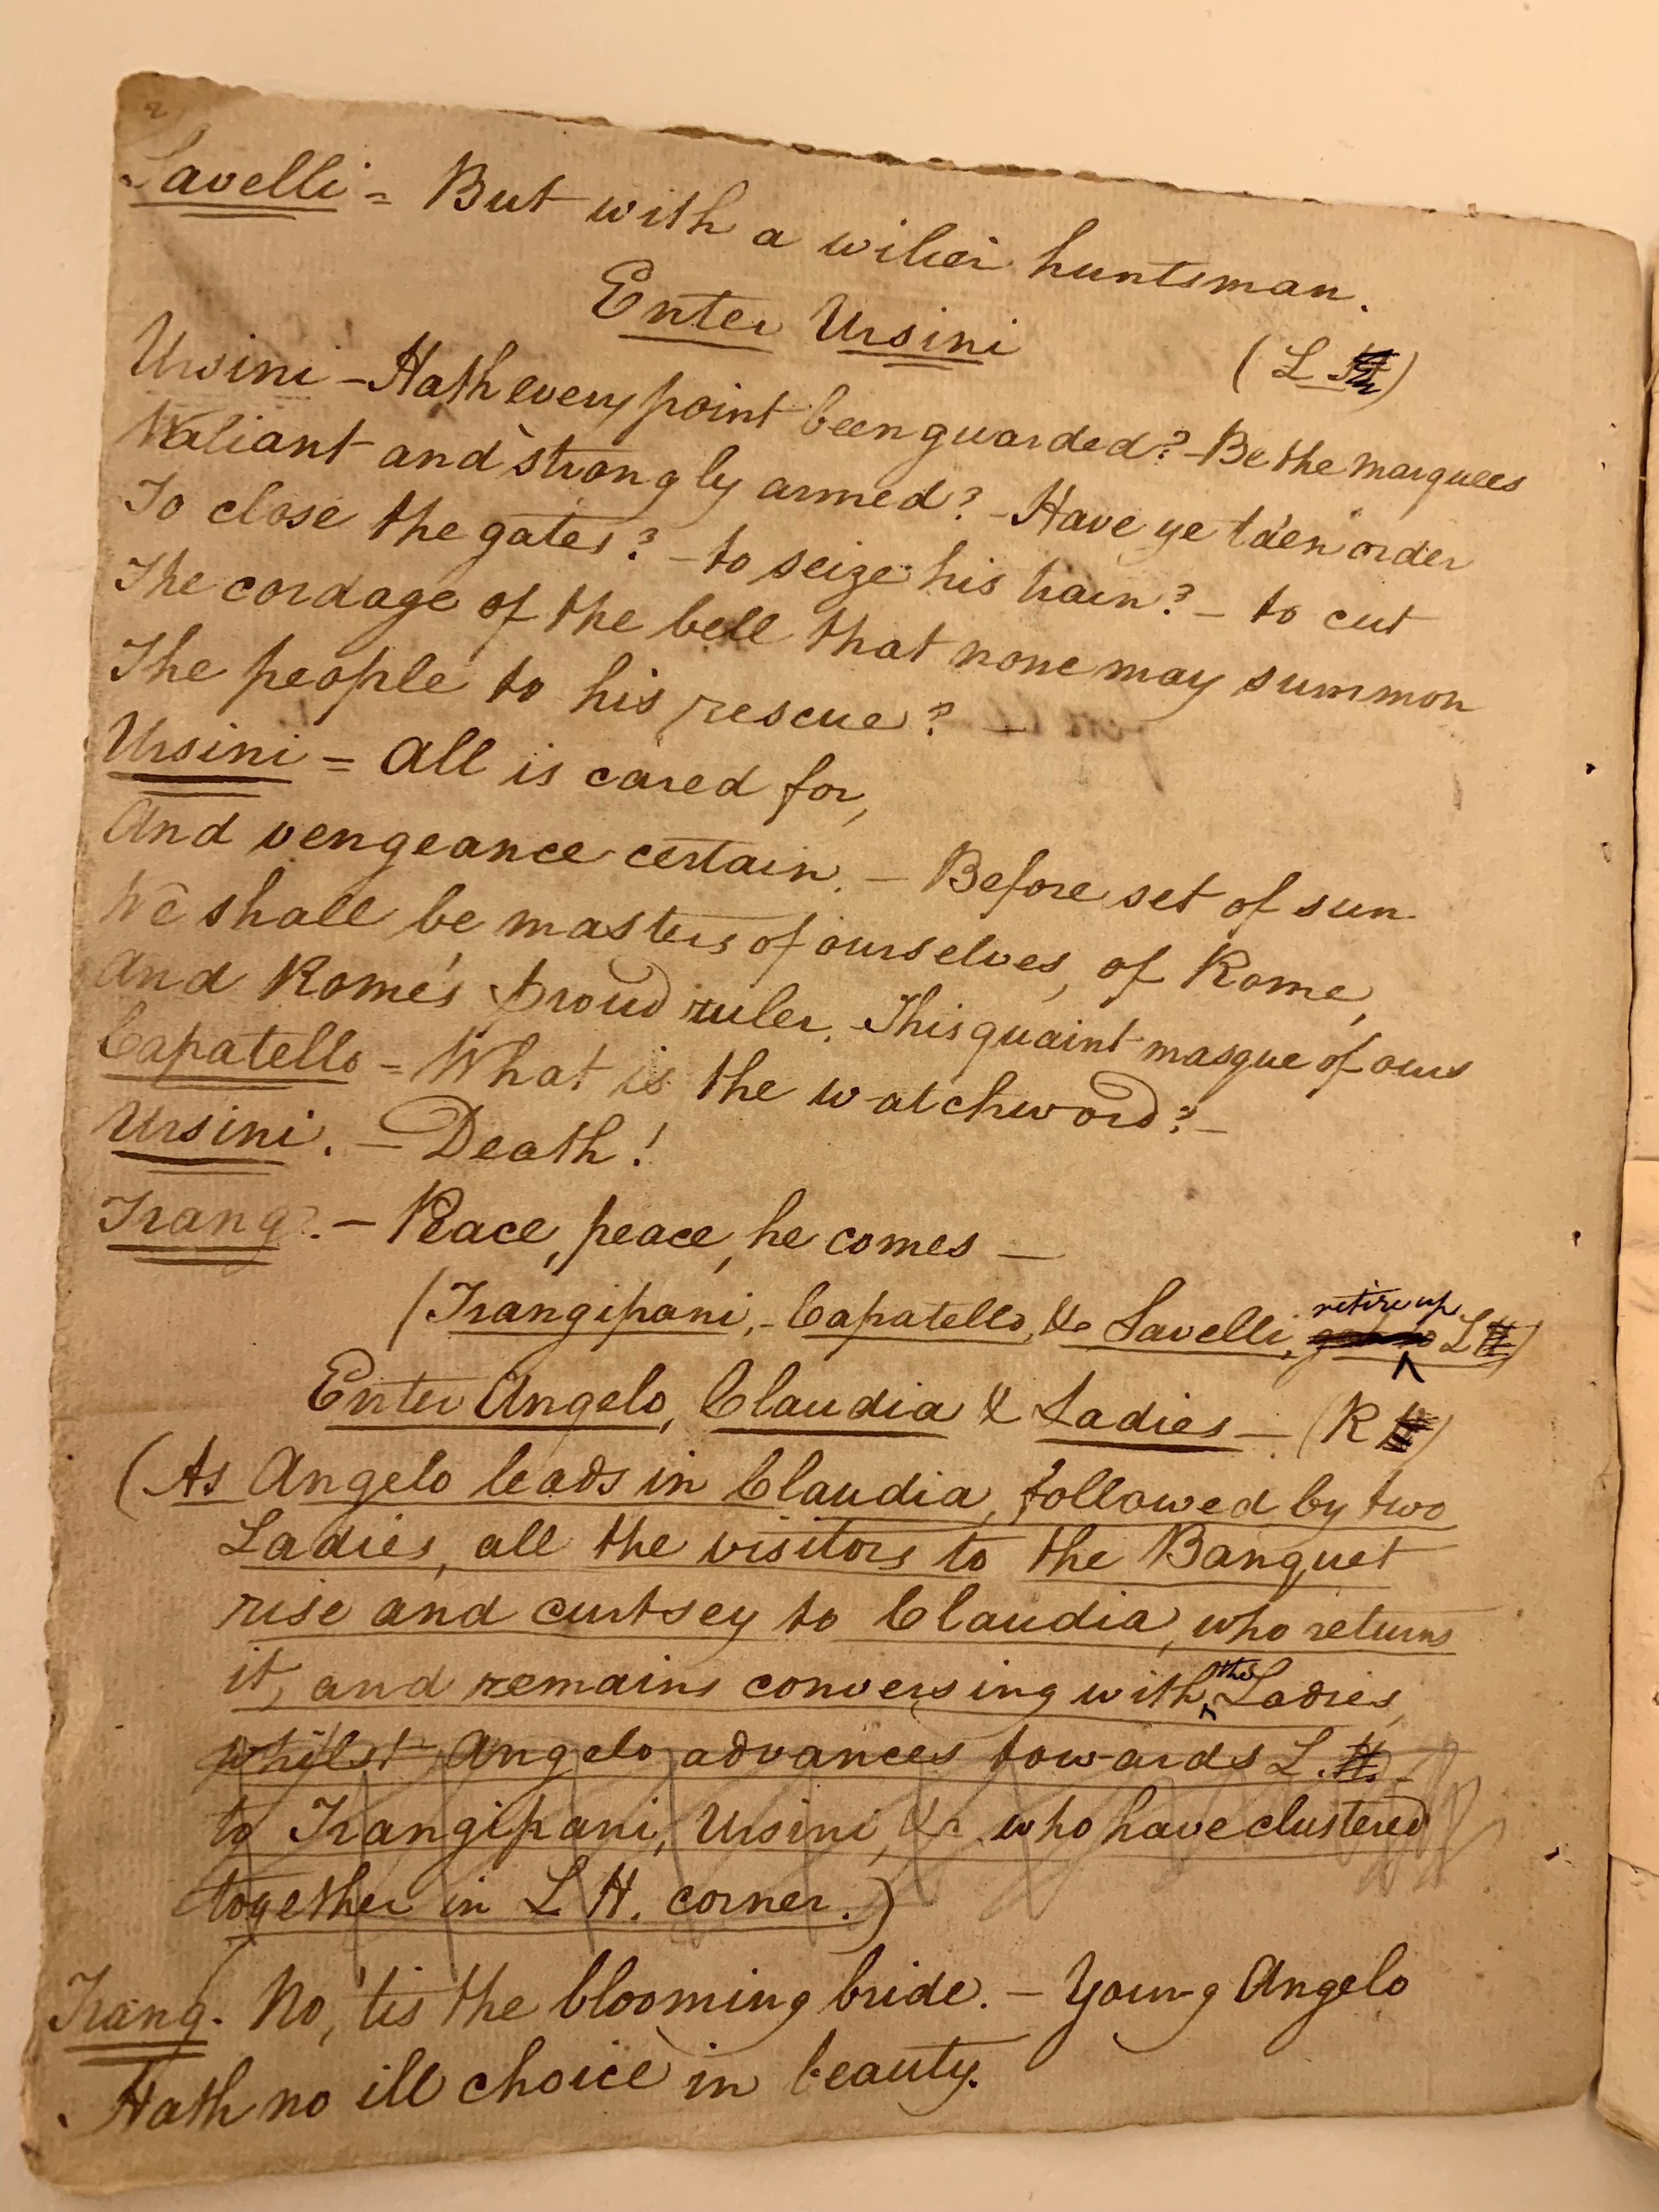 Savelli = But with a wilier huntsman.
Enter Ursini
(L H)
Ursini - Hath every point been guarded? - Be the marquees
Valiant and strongly armed? - Have ye ta'en order
To close the gates? - to seize his train? - to cut
The cordage of the bell that none may summon
The people to his rescue? -
Ursini = All is cared for,
And vengeance certain. - Before set of sun
We shall be masters of ourselves, of Rome,
And Rome's proud ruler. - This quaint masque of ours
Capatello = What is the watchword? -
Ursini. - Death!
Frang. - Peace, peace, he comes -
(Frangipani, - Capatello, &c Savelli, retire up L H)
Enter Angelo, Claudia & Ladies - (R H)
(As Angelo leads in Claudia, followed by two
Ladies, all the visitors to the Banquet
rise and curtsey to Claudia, who returns
it, and remains conversing with the Ladies,
whilst Angelo advances towards L. H.
to Frangipani, Ursini, &c. who have clustered
together in L H. corner.)
Frang. No, 'tis the blooming bride. - Young Angelo
Hath no ill choice in beauty.